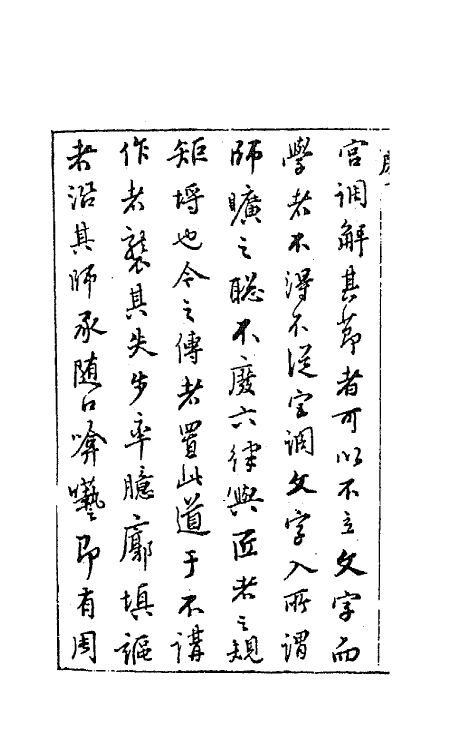 宫调解其節者可以不立文字而
學者不得不從宫調文字入所謂
師曠之聪不廢六律與匠者之規
矩埒也今之傳者置此道于不講
作者襲其失步率臆廓填謳
者沿其師承随口嗋囈即有周